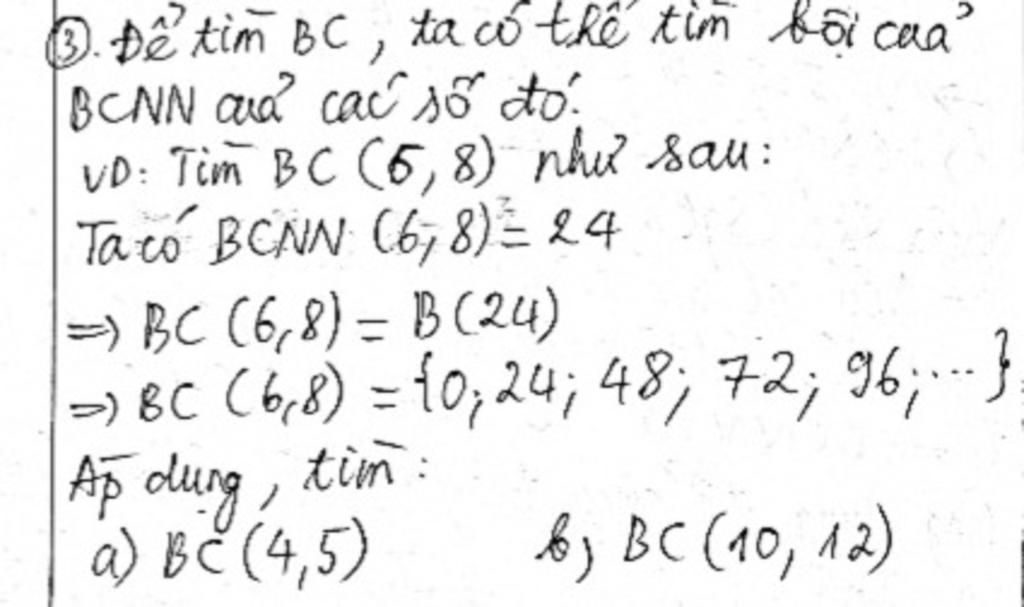 ③. Để tìm BC, ta có thể tìm bội của
BCNN của các số đó.
VD: Tìm BC (6, 8) như sau:
Ta có BCNN (6, 8) = 24
=> BC (6,8) = B(24)
=> BC (6,8) = {0; 24; 48; 72; 96; ...}
Áp dụng, tìm:
a) BC (4,5) b) BC (10, 12)